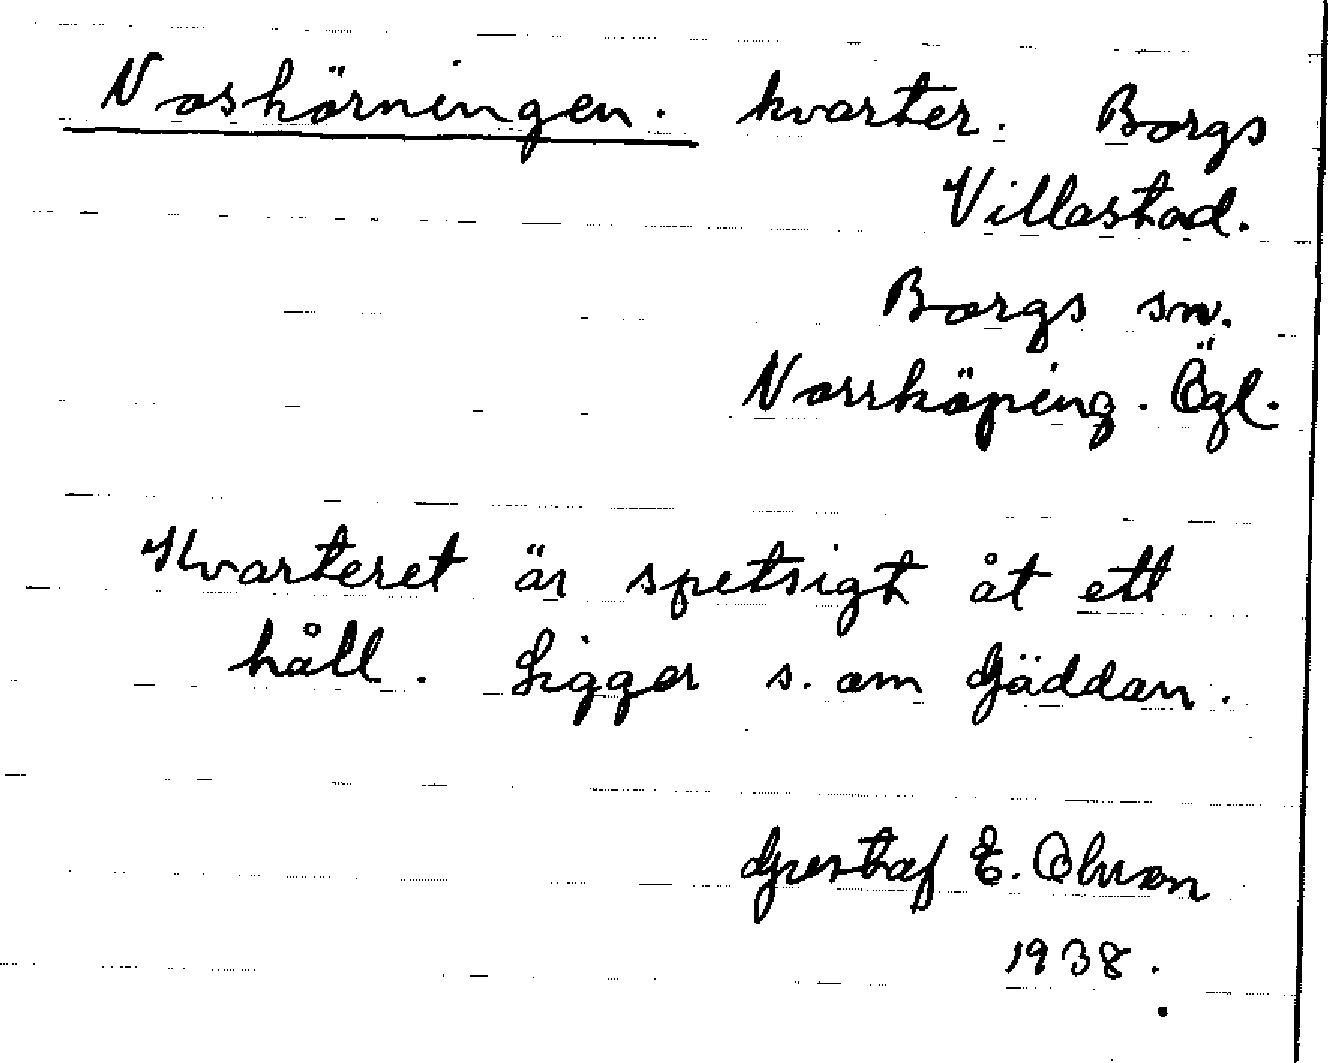 Noshörningen. kvarter. Borgs
Villastad.
Borgs sn.
Norrköping. Ögl.
Kvarteret är spetsigt åt ett
håll. Ligger s. om Gäddan.
Gustaf E. Olsson
1938.